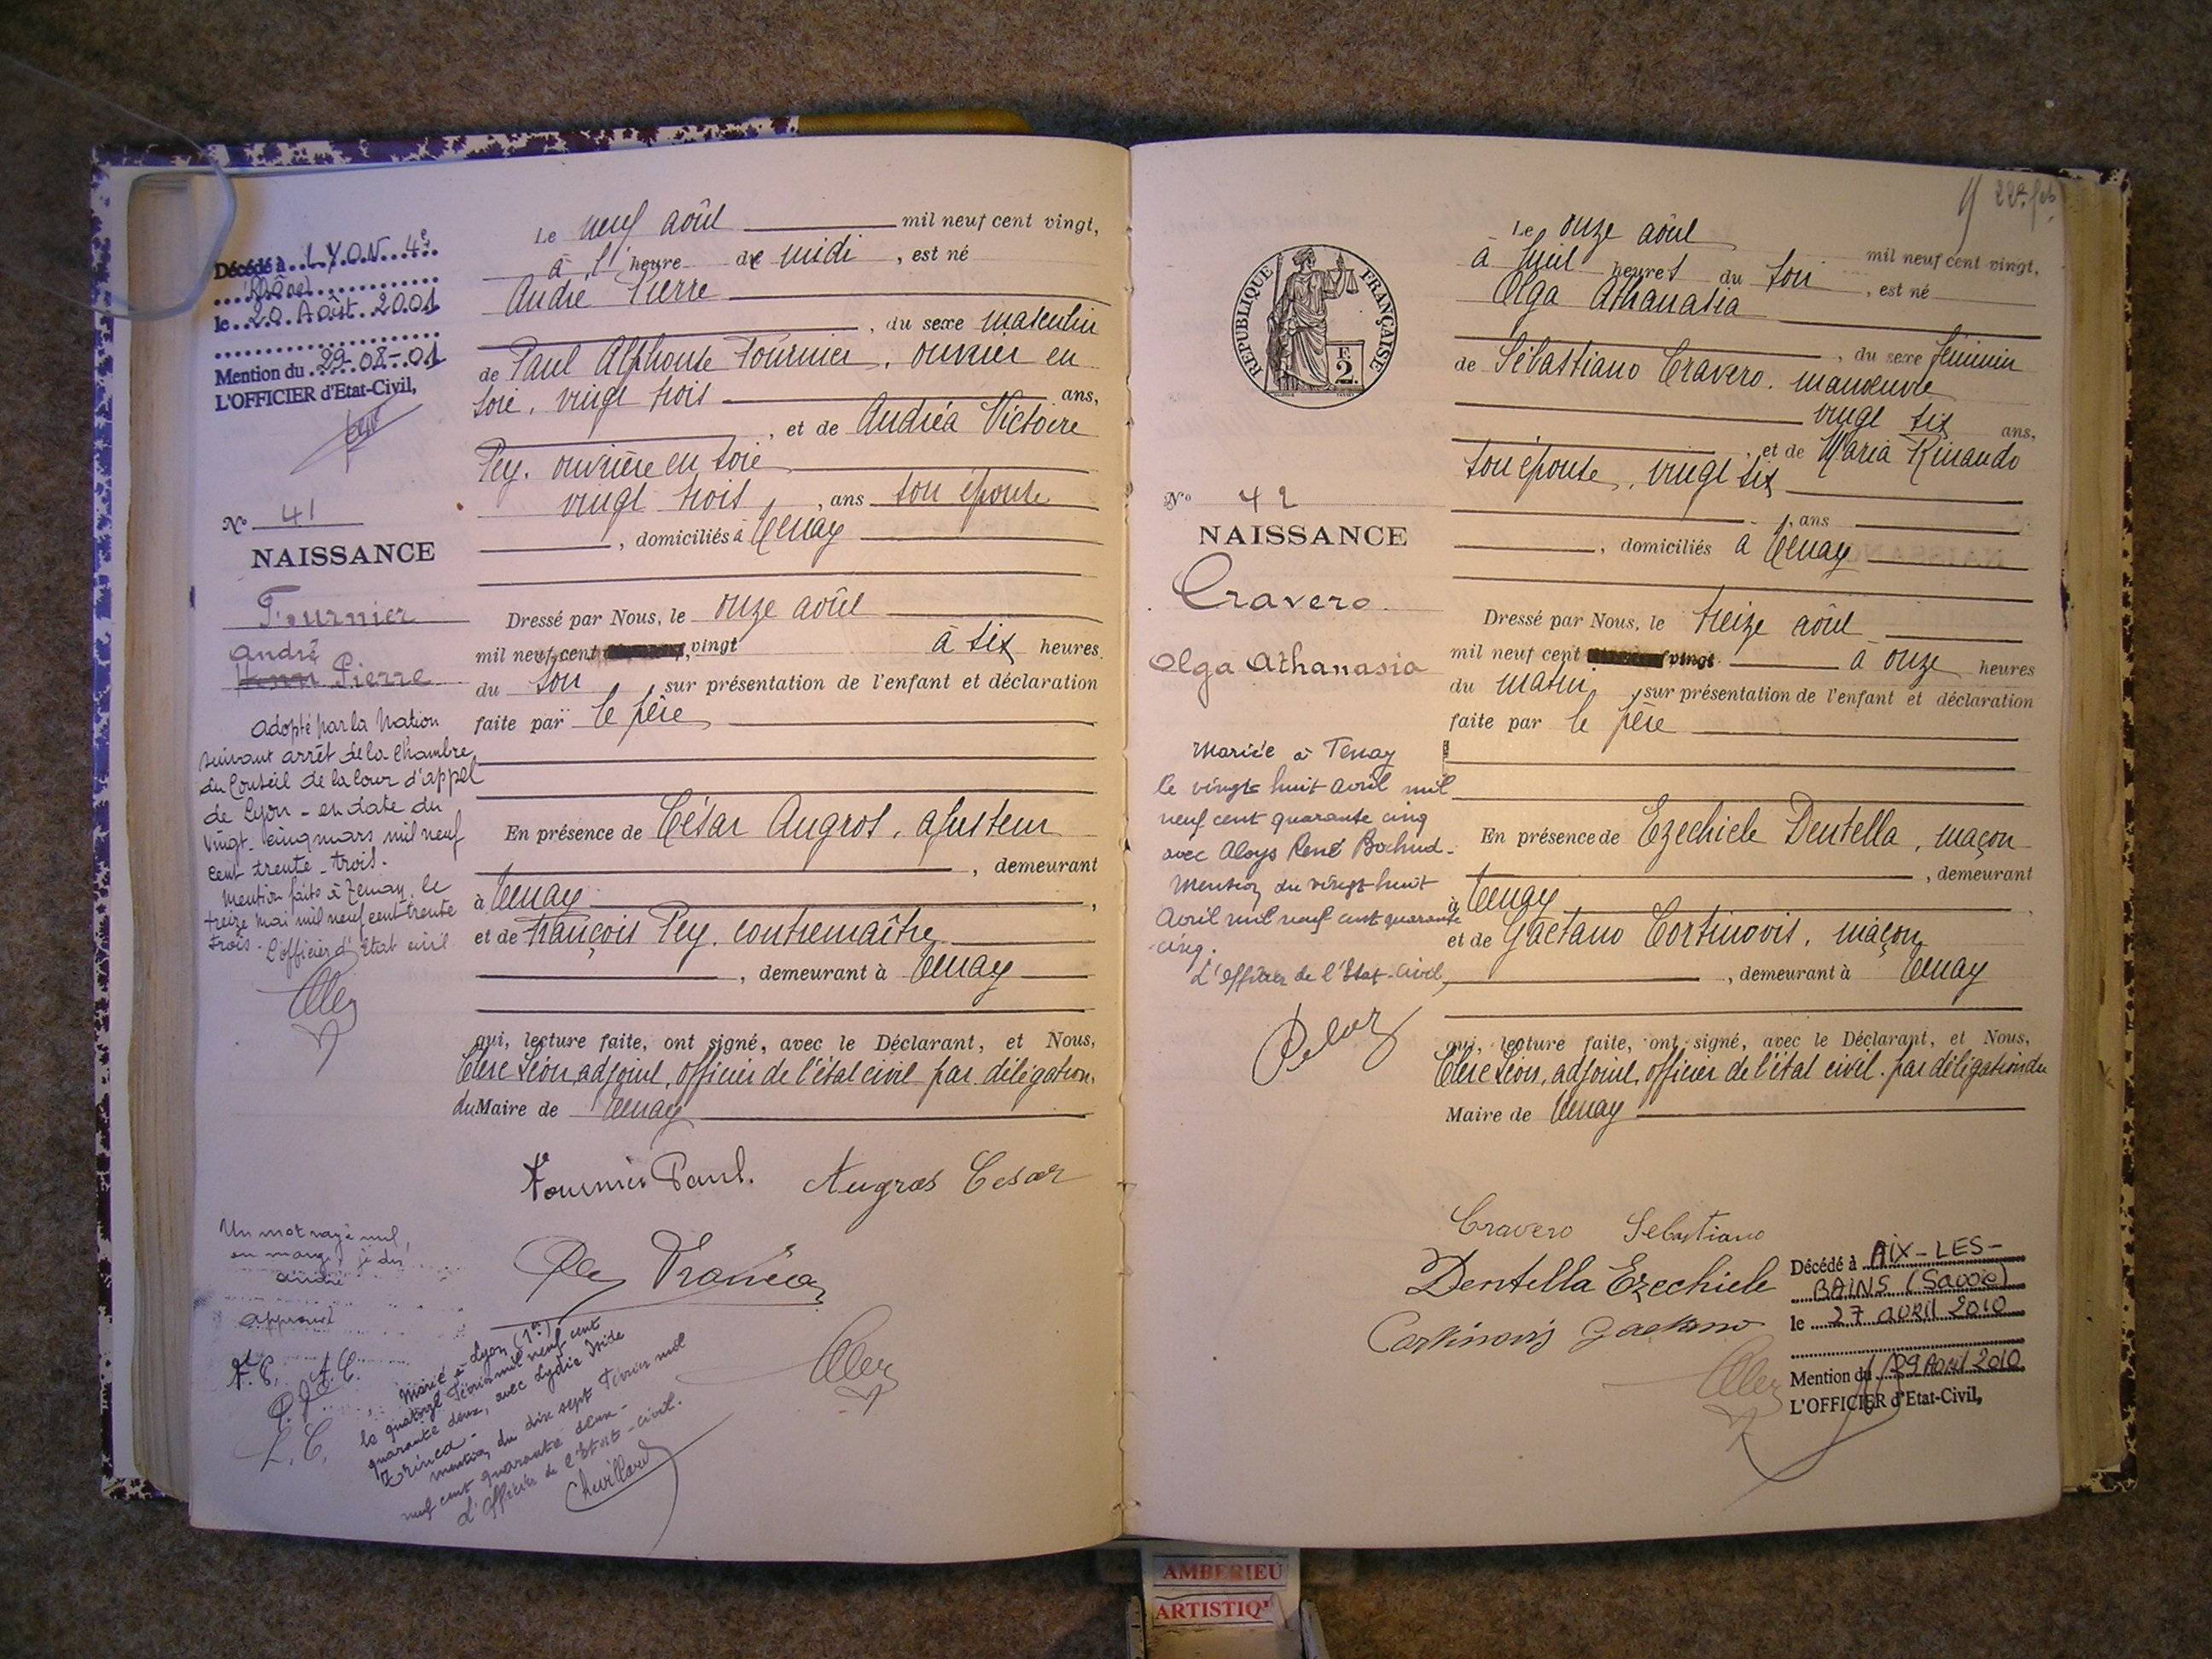 Décédé à LYON 4e
(Rhône)
le 20 Août 2001
Mention du 29-08-01
L'OFFICIER d'Etat-Civil,
No 41
NAISSANCE
Fournier
André
Henri Pierre
Adopté par la Nation
suivant arrêt de la Chambre
du Conseil de la Cour d'appel
de Lyon - en date du
vingt-cinq mars mil neuf
cent trente-trois.
Mention faite à Tenay, le
treize mai mil neuf cent trente
trois - L'officier d'Etat civil
Le neuf août mil neuf cent vingt,
à 1 heure de midi, est né
André Pierre
, du sexe masculin
de Paul Alphonse Fournier, ouvrier en
soie, vingt trois ans,
, et de Andréa Victoire
Pey, ouvrière en soie
vingt trois, ans son épouse
, domiciliés à Tenay
Dressé par Nous, le onze août
mil neuf cent vingt à six heures
du soir, sur présentation de l'enfant et déclaration
faite par le père
En présence de César Augros, ajusteur
, demeurant
à Tenay,
et de François Pey, contremaître
, demeurant à Tenay
qui, lecture faite, ont signé, avec le Déclarant, et Nous,
Clerc Léon, adjoint, officier de l'état civil par délégation
du Maire de Tenay
Fournier Paul. Augros Cesar
Pey François
Un mot rayé nul,
en marge, je dis
André
approuvé
F. P. A. C.
P. F.
L. C.
Marié à Lyon (1er)
le quatorze Février mil neuf cent
quarante deux, avec Lydie Iside
Zrined -
Mention du dix sept Février mil
neuf cent quarante deux -
L'Officier de l'Etat-civil.
Chevillard
REPUBLIQUE FRANÇAISE
F.
2.
No 42
NAISSANCE
Cravero
Olga Athanasia
Mariée à Tenay
le vingt-huit avril mil
neuf cent quarante cinq
avec Aloys René Bochud.
Mention du vingt-huit
Avril mil neuf cent quarante
cinq.
L'Officier de l'Etat-Civil,
Le onze août mil neuf cent vingt,
à huit heures du soir, est né
Olga Athanasia
, du sexe féminin
de Sébastiano Cravero, manœuvre
vingt six ans,
, et de Maria Rinaudo
son épouse, vingt six
, ans
, domiciliés à Tenay
Dressé par Nous, le treize août
mil neuf cent vingt à onze heures
du matin, sur présentation de l'enfant et déclaration
faite par le père
En présence de Ezechiele Dentella, maçon
, demeurant
à Tenay
et de Gaetano Cortinovis, maçon
, demeurant à Tenay
qui, lecture faite, ont signé, avec le Déclarant, et Nous,
Clerc Léon, adjoint, officier de l'état civil par délégation du
Maire de Tenay
Cravero Sebastiano
Dentella Ezechiele
Cortinovis Gaetano
Décédé à AIX-LES-
BAINS (Savoie)
le 27 avril 2010
Mention du 29 Avril 2010
L'OFFICIER d'Etat-Civil,
AMBERIEU
ARTISTIQ